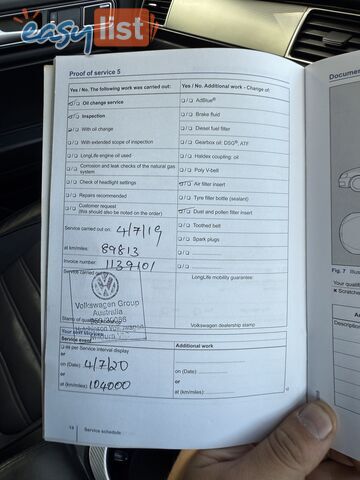 easylist
Proof of service 5
Yes / No. The following work was carried out:
Oil change service
Inspection
With oil change
With extended scope of inspection
LongLife engine oil used
Corrosion and leak checks of the natural gas
system
Check of headlight settings
Repairs recommended
Customer request
(this should also be noted on the order)
Service carried out on: 4/7/19
at km/miles: 89813
Invoice number: 1139101
Service carried out
Volkswagen Group
Australia
Stamp of
Your next services
Service event
as per Service interval display
or
on (Date): 4/7/20
or
at (km/miles): 104000
Yes / No. Additional work - Change of:
AdBlue®
Brake fluid
Diesel fuel filter
Gearbox oil: DSG®, ATF
Haldex coupling: oil
Poly V-belt
Air filter insert
Tyre filler bottle (sealant)
Dust and pollen filter insert
Toothed belt
Spark plugs
LongLife mobility guarantee:
Volkswagen dealership stamp
Additional work
on (Date):
or
at (km/miles):
Service schedule
Documen
Fig. 7 Illus
Your qualifi
× Scratches